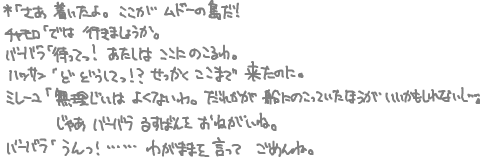 ネ「さあ 着いたよ。ここが ムドーの島だ!
チャモロ「では 行きましょうか。
バーバラ「待ってっ! あたしは ここにのこるわ。
ハッサン「ど どうしてっ!? せっかく ここまで 来たのに。
ミレーユ「無理じいは よくないわ。だれかが 船にのこっていたほうが いいかもしれないし…。
じゃあ バーバラ るすばんを おねがいね。
バーバラ「うんっ! …… わがままを 言って ごめんね。